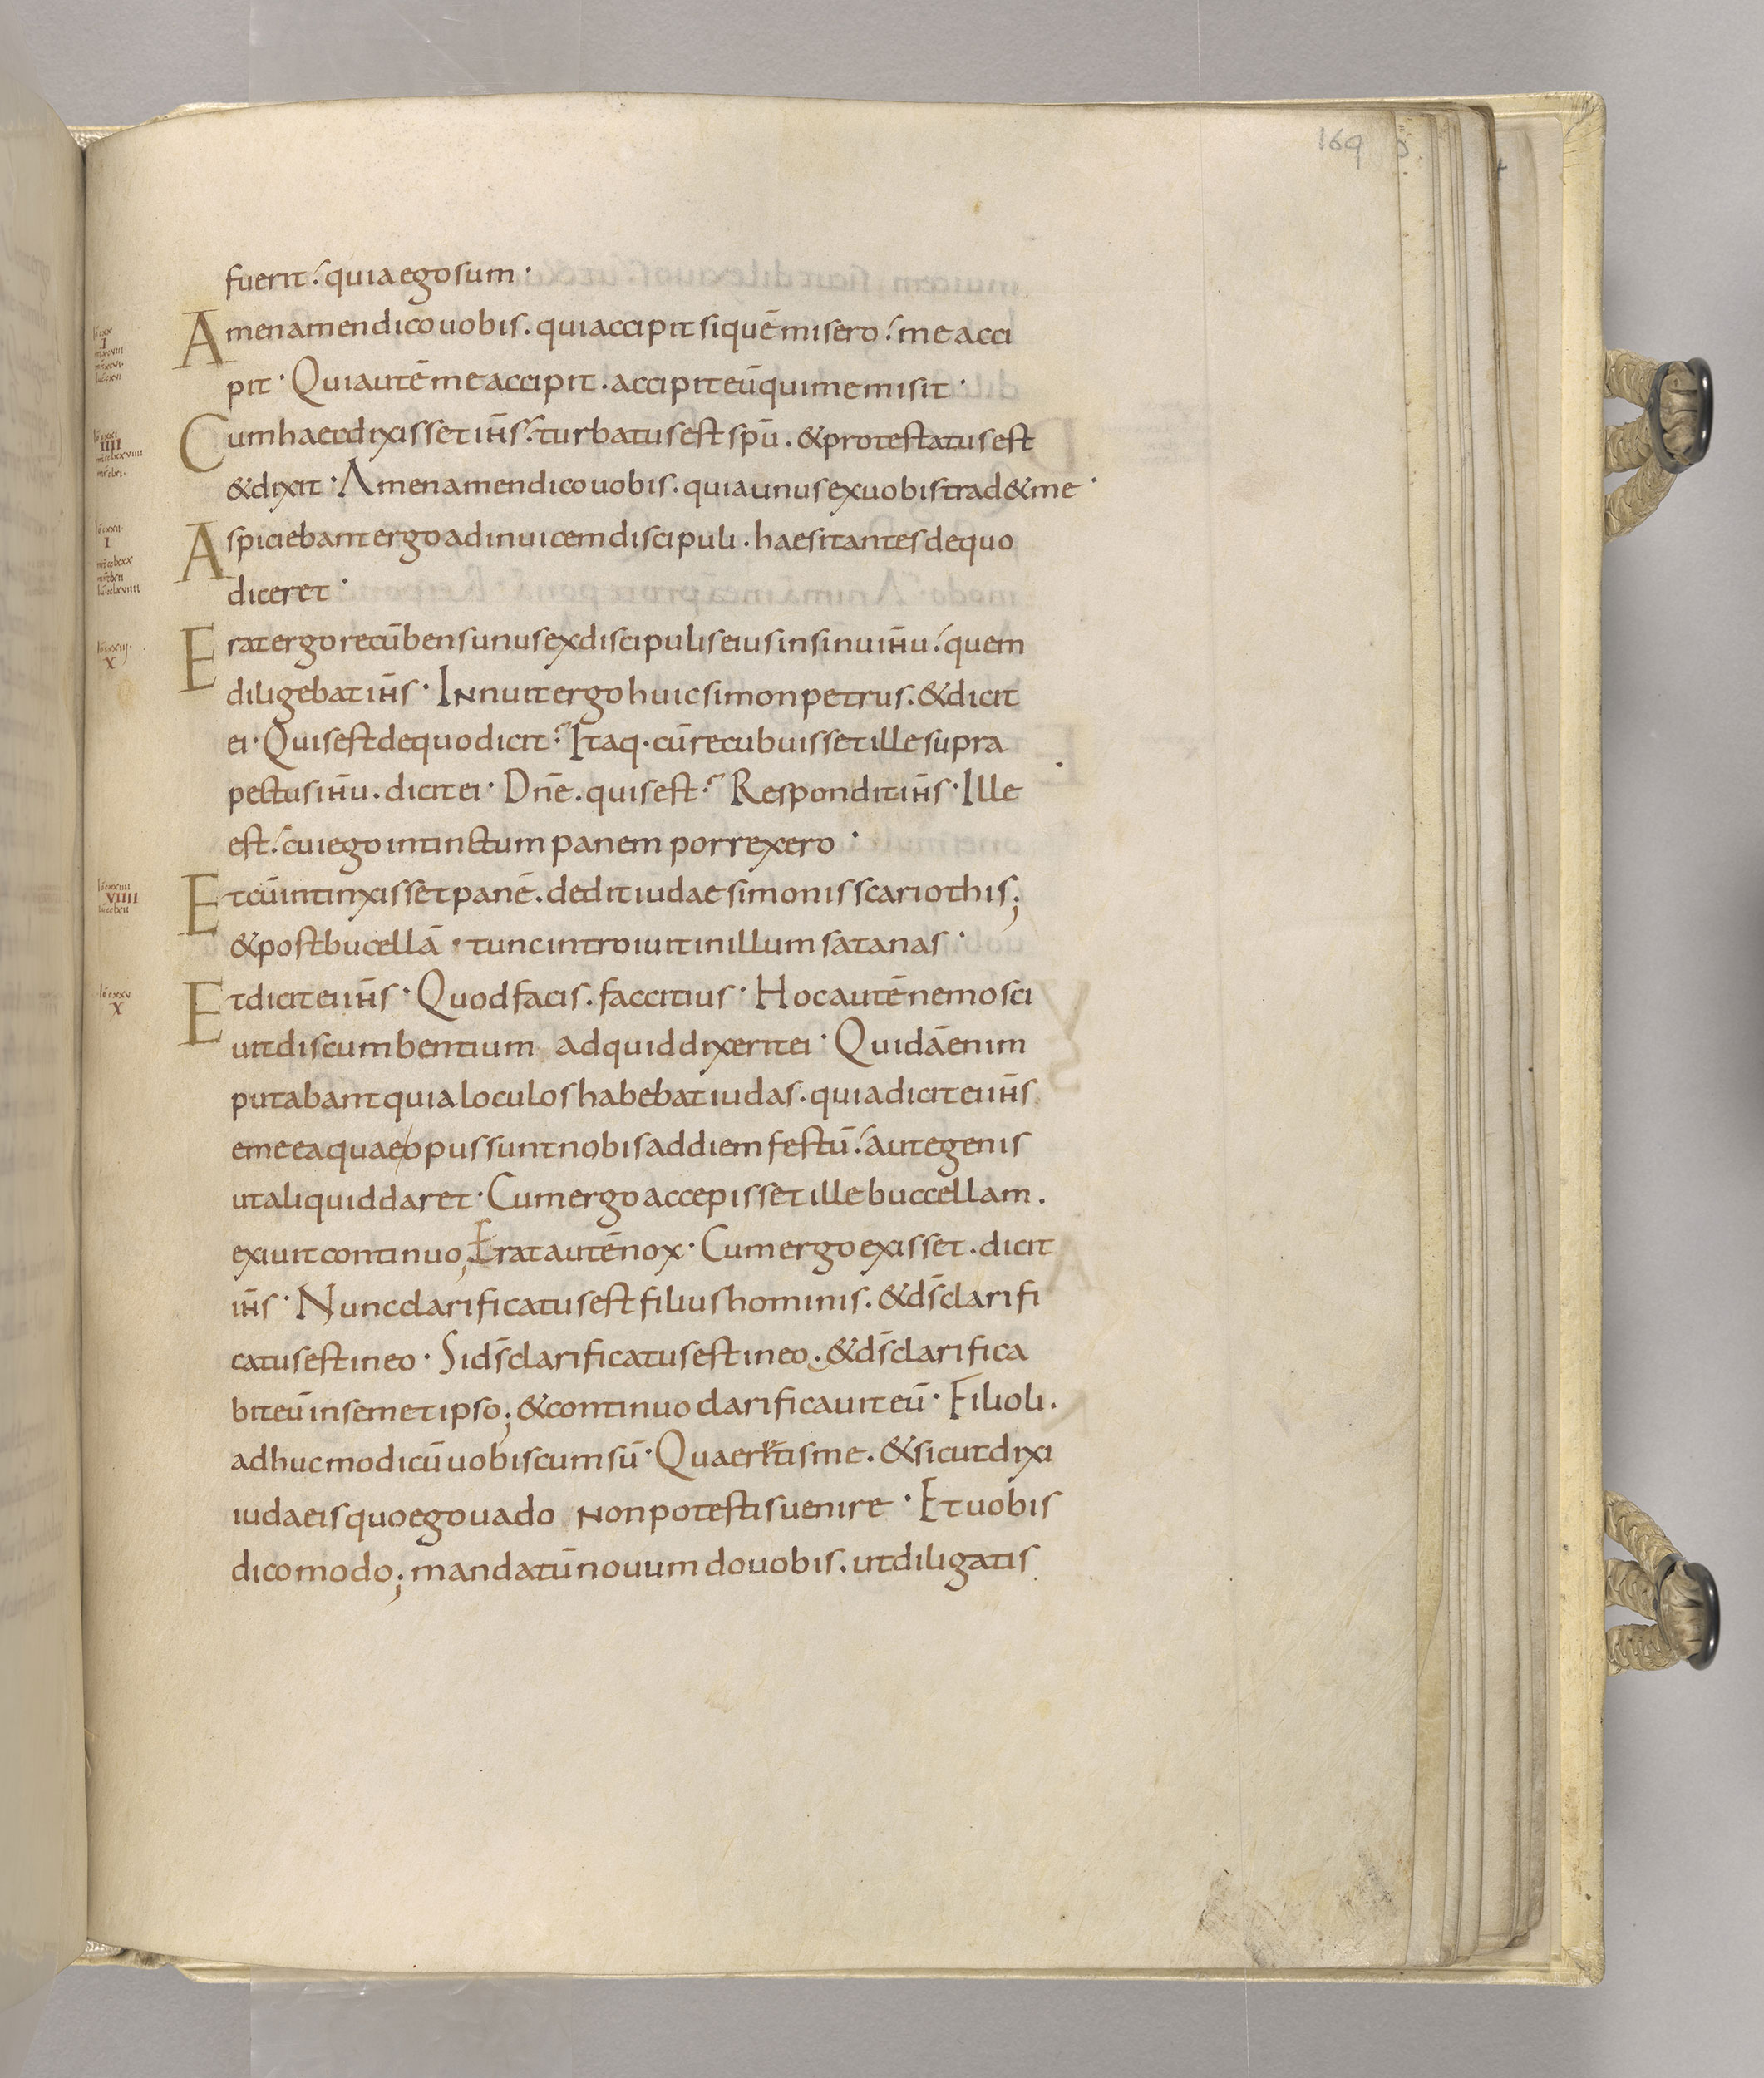 169
fuerit. quia ego sum.
Amen amen dico uobis. qui accipit si quē misero. me acci
pit. Qui autē me accipit. accipit eū qui me misit.
Cum haec dixisset ih̄s. turbatus est sp̄u. & protestatus est
& dixit. Amen amen dico uobis. quia unus ex uobis trad& me.
Aspiciebant ergo ad inuicem discipuli. haesitantes de quo
diceret.
Erat ergo recūbens unus ex discipulis eius in sinu ih̄u. quem
diligebat ih̄s. Innuit ergo huic simon petrus. & dicit
ei. Quis est de quo dicit? Itaq. cū recubuisset ille supra
pectus ih̄u. dicit ei. Dn̄e. quis est? Respondit ih̄s. Ille
est. cui ego intinctum panem porrexero.
Et cū intinxisset panē. dedit iudae simonis scariothis;
& post bucellā. tunc introiuit in illum satanas.
Et dicit ei ih̄s. Quod facis. fac citius. Hoc autē nemo sci
uit discumbentium ad quid dixerit ei. Quidā enim
putabant quia loculos habebat iudas. quia dicit ei ih̄s
eme ea quae opus sunt nobis ad diem festū. aut egenis
ut aliquid daret. Cum ergo accepisset ille buccellam.
exiuit continuo; Erat autē nox. Cum ergo exisset. dicit
ih̄s. Nunc clarificatus est filius hominis. & d̄s clarifi
catus est in eo. Si d̄s clarificatus est in eo. & d̄s clarifica
bit eū in semetipso; & continuo clarificauit eū. Filioli.
adhuc modicū uobiscum sū. Quaeritis me. & sicut dixi
iudaeis quo ego uado non potestis uenire. Et uobis
dico modo; mandatū nouum do uobis. ut diligatis
I
IIII
I
X
VIIII
X